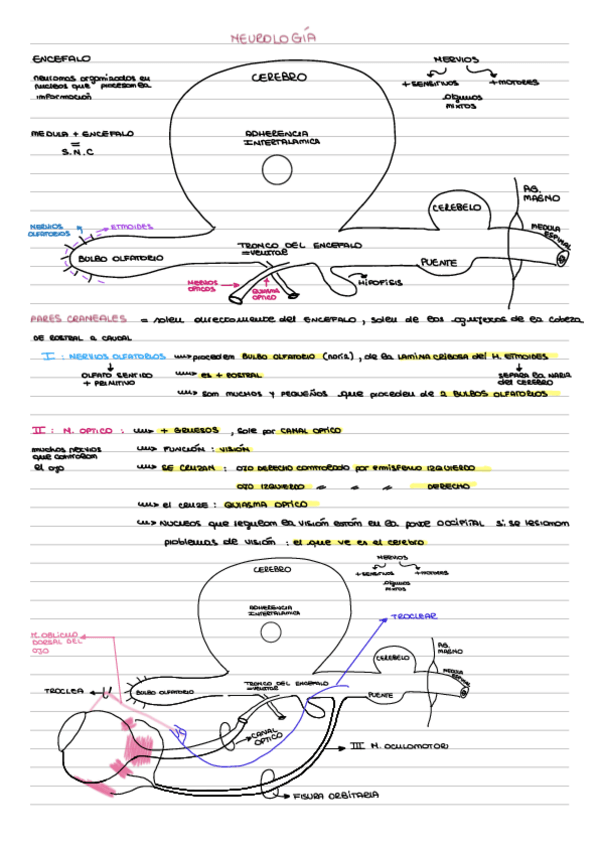 NEUROLOGÍA
ENCEFALO
neuronas organizadas en
nucleos que procesan la
información
MEDULA + ENCEFALO
=
S.N.C
CEREBRO
ADHERENCIA
INTERTALAMICA
NERVIOS
+ SENSITIVOS + MOTORES
algunos
mixtos
AG.
MAGNO
CEREBELO
MEDULA
ESPINAL
NERVIOS
OLFATORIOS
ETMOIDES
BULBO OLFATORIO
TRONCO DEL ENCEFALO
=VENTRAL
PUENTE
NERVIOS
OPTICOS
QUIASMA
OPTICO
HIPOFISIS
PARES CRANEALES = salen directamente del ENCEFALO, salen de los agujeros de la cabeza
DE ROSTRAL A CAUDAL
I : NERVIOS OLFATORIOS proceden BULBO OLFATORIO (nariz), de la LAMINA CRIBOSA del H. ETMOIDES
OLFATO SENTIDO
+ PRIMITIVO
es + ROSTRAL
SEPARA la NARIZ
del CEREBRO
son muchos y pequeños que proceden de 2 BULBOS OLFATORIOS
II : N. OPTICO : + GRUESOS, sale por CANAL OPTICO
muchos nervios
que controlan
el ojo
FUNCIÓN : VISIÓN
SE CRUZAN : OJO DERECHO controlado por EMISFERIO IZQUIERDO
OJO IZQUIERDO " " " DERECHO
el CRUZE : QUIASMA OPTICO
NUCLEOS que regulan la VISIÓN están en la parte OCCIPITAL si se lesionan
problemas de VISIÓN : el que ve es el cerebro
CEREBRO
ADHERENCIA
INTERTALAMICA
NERVIOS
+ SENSITIVOS + MOTORES
algunos
mixtos
TROCLEAR
M. OBLICUO
DORSAL DEL
OJO
AG.
MAGNO
CEREBELO
MEDULA
ESPINAL
TROCLEA
BULBO OLFATORIO
TRONCO DEL ENCEFALO
=VENTRAL
PUENTE
CANAL
OPTICO
III N. OCULOMOTOR
FISURA ORBITARIA